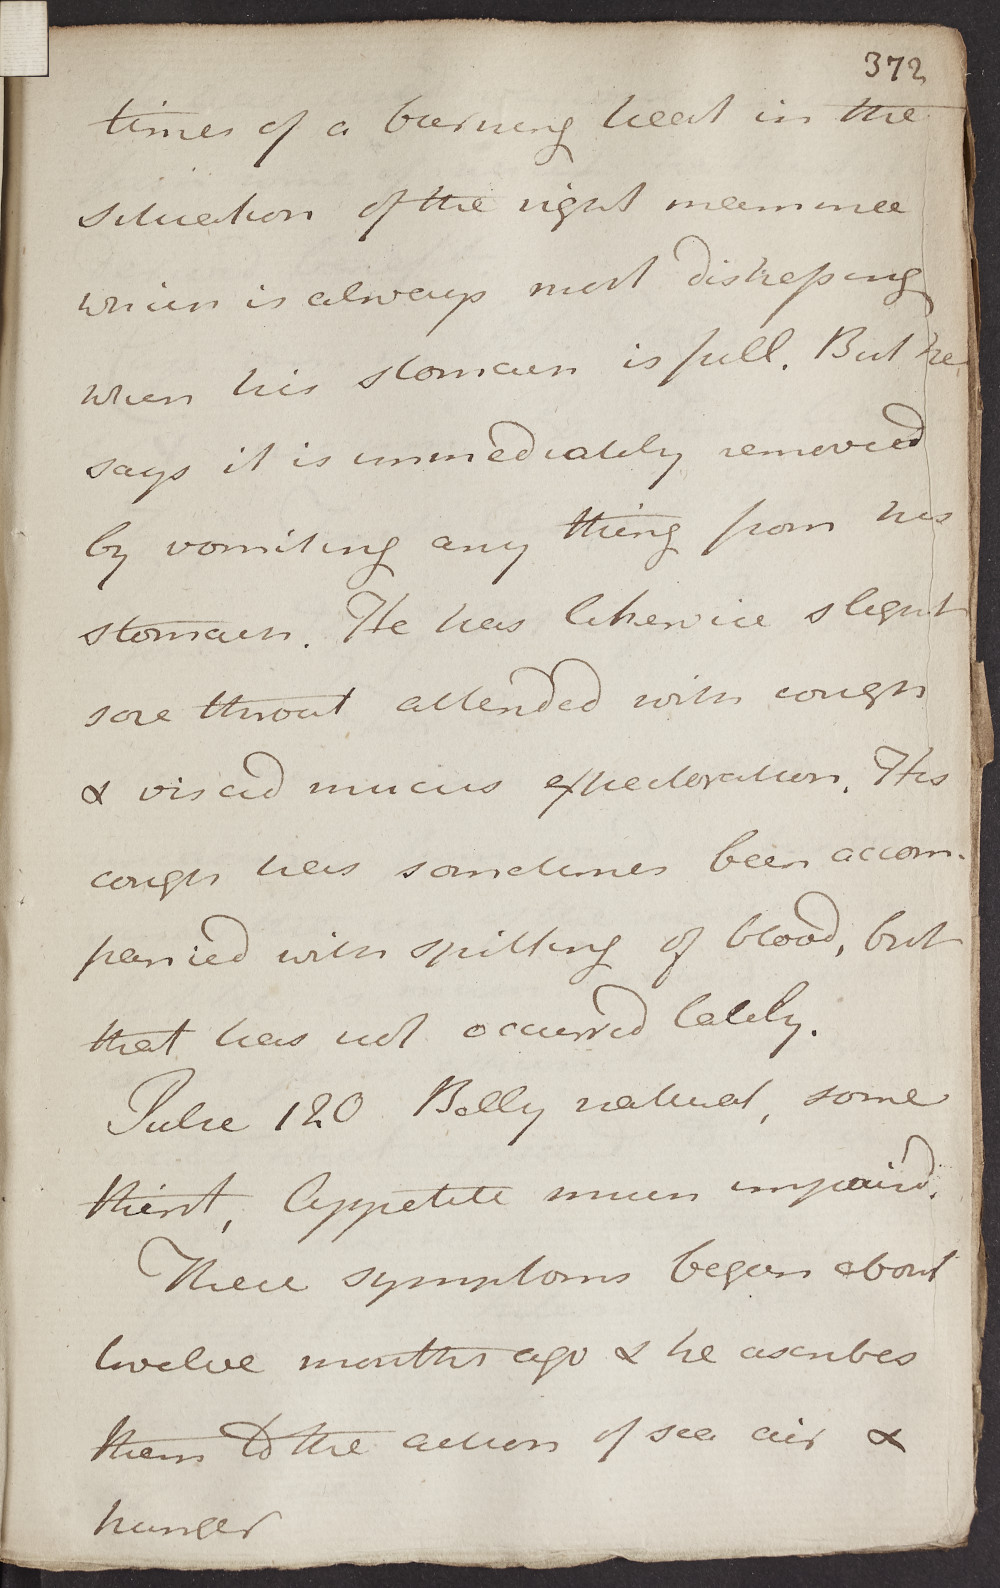 372
times of a burning heat in the
situation of the right mammae
which is always most distressing
when his stomach is full. But he
says it is immediately removed
by vomiting any thing from his
stomach. He has likewise slight
sore throat attended with cough
& viscid mucus expectoration. His
cough has sometimes been accom-
panied with spitting of blood, but
that has not occurred lately.
Pulse 120 Belly natural, some
thirst, Appetite much impaired.
These symptoms began about
twelve months ago & he ascribes
them to the action of sea air &
hunger